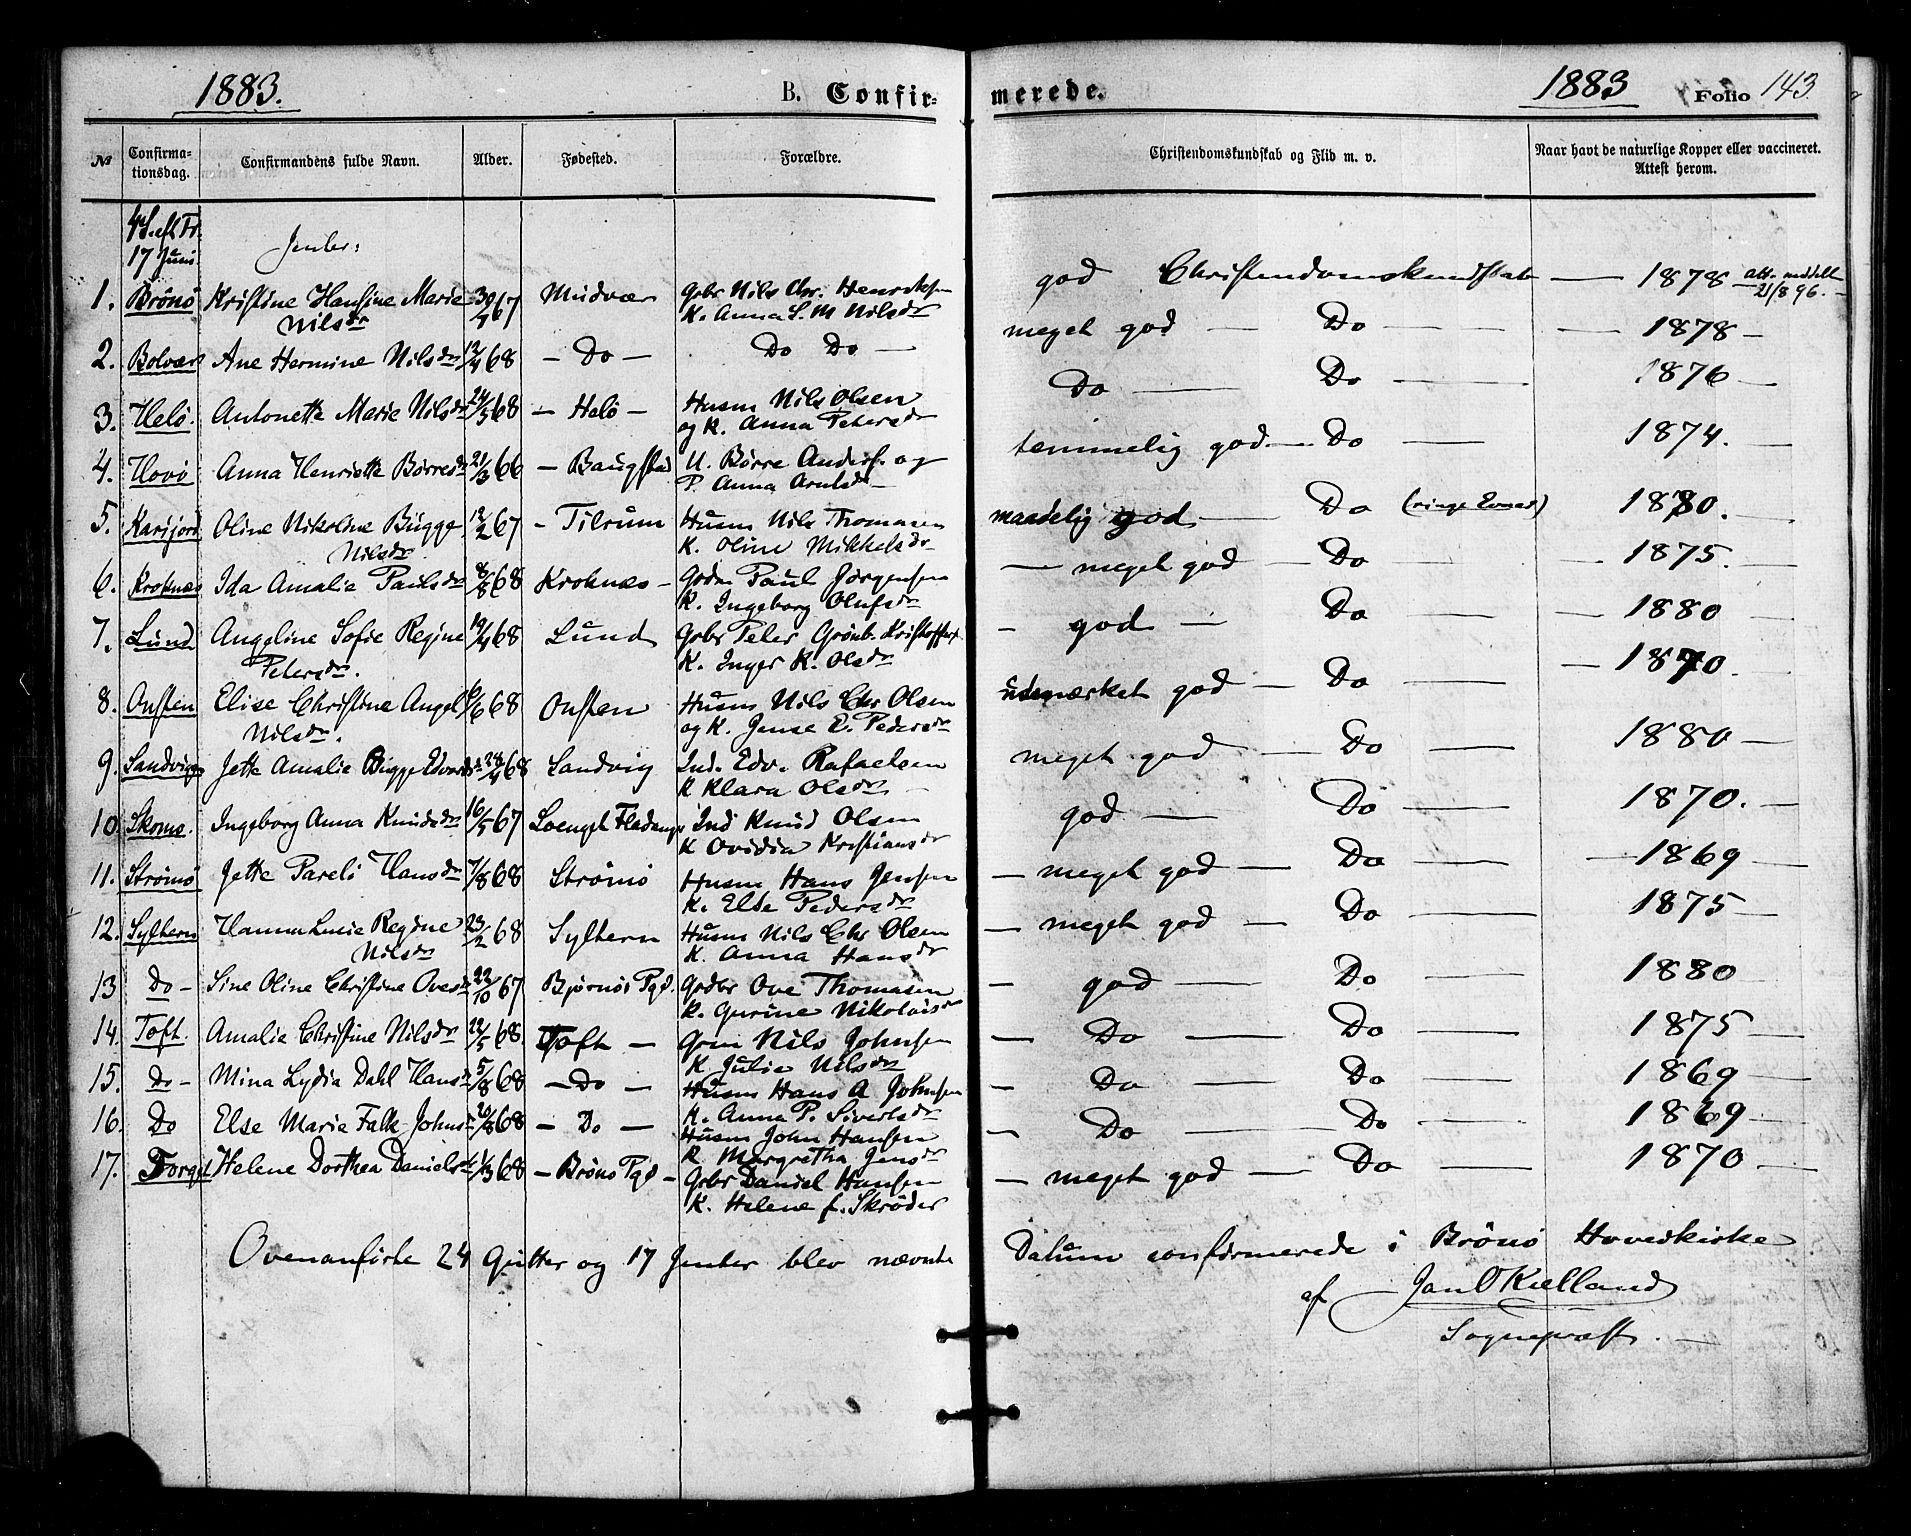 1883. B. Confirmerede. 1883 Folio 143.
№ Confirmationsdag. Confirmandens fulde Navn. Alder. Fødested. Forældre. Christendomskundskab og Flid m. v. Naar havt de naturlige Kopper eller vaccineret. Attest herom.
4 S. eft Tr.
17 Juni. Jenter:
1. Brönö Kristine Hansine Marie 67 Mudvær Gbr Nils Chr. Henriksen god Christendomskundskab — 1878 — att. meddelt
Nilsdr K. Anna S. M Nilsdr 21/8 96.
2. Bolvær Ane Hermine Nilsdr 12/4 68 — Do — Do Do — meget god — Do — 1878 —
3. Helö. Antonette Marie Nilsdr 24/5 68 — Helö — Husm Nils Olsen Do — Do — 1876 —
og K. Anna Petersdr
4. Hovö Anna Henriette Børresdr 21/3 66 — Baugstad U. Börre Anders. og temmelig god — Do — 1874. —
P. Anna Arntsdr
5. Karijord Oline Nikoline Bugge 12/2 67 — Tilrum Husm Nils Thomasen maadelig god — Do (ringe Evner) 1880. —
Nilsdr K. Oline Mikkelsdr
6. Kroknæs Ida Amalie Paulsdr 8/8 68 Kroknæs — Paul Jörgensen — meget god — Do — 1875. —
K. Ingeborg Olufsdr
7. Lund Angeline Sofie Regine 19/4 68 Lund Grbr Peter Grönb. Kristoffers. — god — Do — 1880
Petersdr. K. Inger K. Olsdr
8. Onsten Elise Christine Angel 6/6 68 Onsten Husm Nils Chr Olsen udmærket god — Do — 1870.
Nilsdr. og K. Jense E. Pedersdr
9. Sandvig Jette Amalie Bugge Edvardsdr 28/4 68 Sandvig Ind. Edv. Rafaelsen meget god — Do — 1880 —
K Klara Olsdr
10 Skomo. Ingeborg Anna Knudsdr 16/5 67 Ind Knud Olsen god — Do — 1870. —
K Ovidia Kristiansdr
11. Strömö Jette Pareli Hansdr 7/8 68 Strömö Husm Hans Jensen — meget god — Do — 1869 —
K. Else Pedersdr
12. Syltern Hanna Lucie Regine 23/2 68 Syltern Husm Nils Chr Olsen — meget god — Do — 1875 —
Nilsdr K. Anna Hansdr
13 Do — Sine Oline Christine Ovesdr 22/10 67 Pgd. Ove Thomasen — god — Do — 1880 —
K. Gurine Nikolaisdr
14. Toft. Amalie Christine Nilsdr 22/5 68. Toft — Nils Johnsen — Do — Do — 1875 —
K Julie Nilsdr
15. Do — Mina Lydia Dahl Hansdr 5/8 68 — Do — Husm Hans A Johnsen — Do — Do — 1869 —
K. Anna P. Sivertsdr
16. Do Else Marie Falk Johnsdr 20/8 68 — Do — Husm John Hansen — Do — Do — 1869 —
K. Margretha Jensdr
17. Torget Helene Dorthea Danielsdr 1/3 68 — Brönö Pgd — Grbr Daniel Hansen — meget god — Do — 1870 —
K. Helene f. Skröder
Ovenanförte 24 Gutter og 17 Jenter blev nævnte Datum confirmerede i Brönö Hovedkirke
af Jan O Kielland
Sognepræst. —